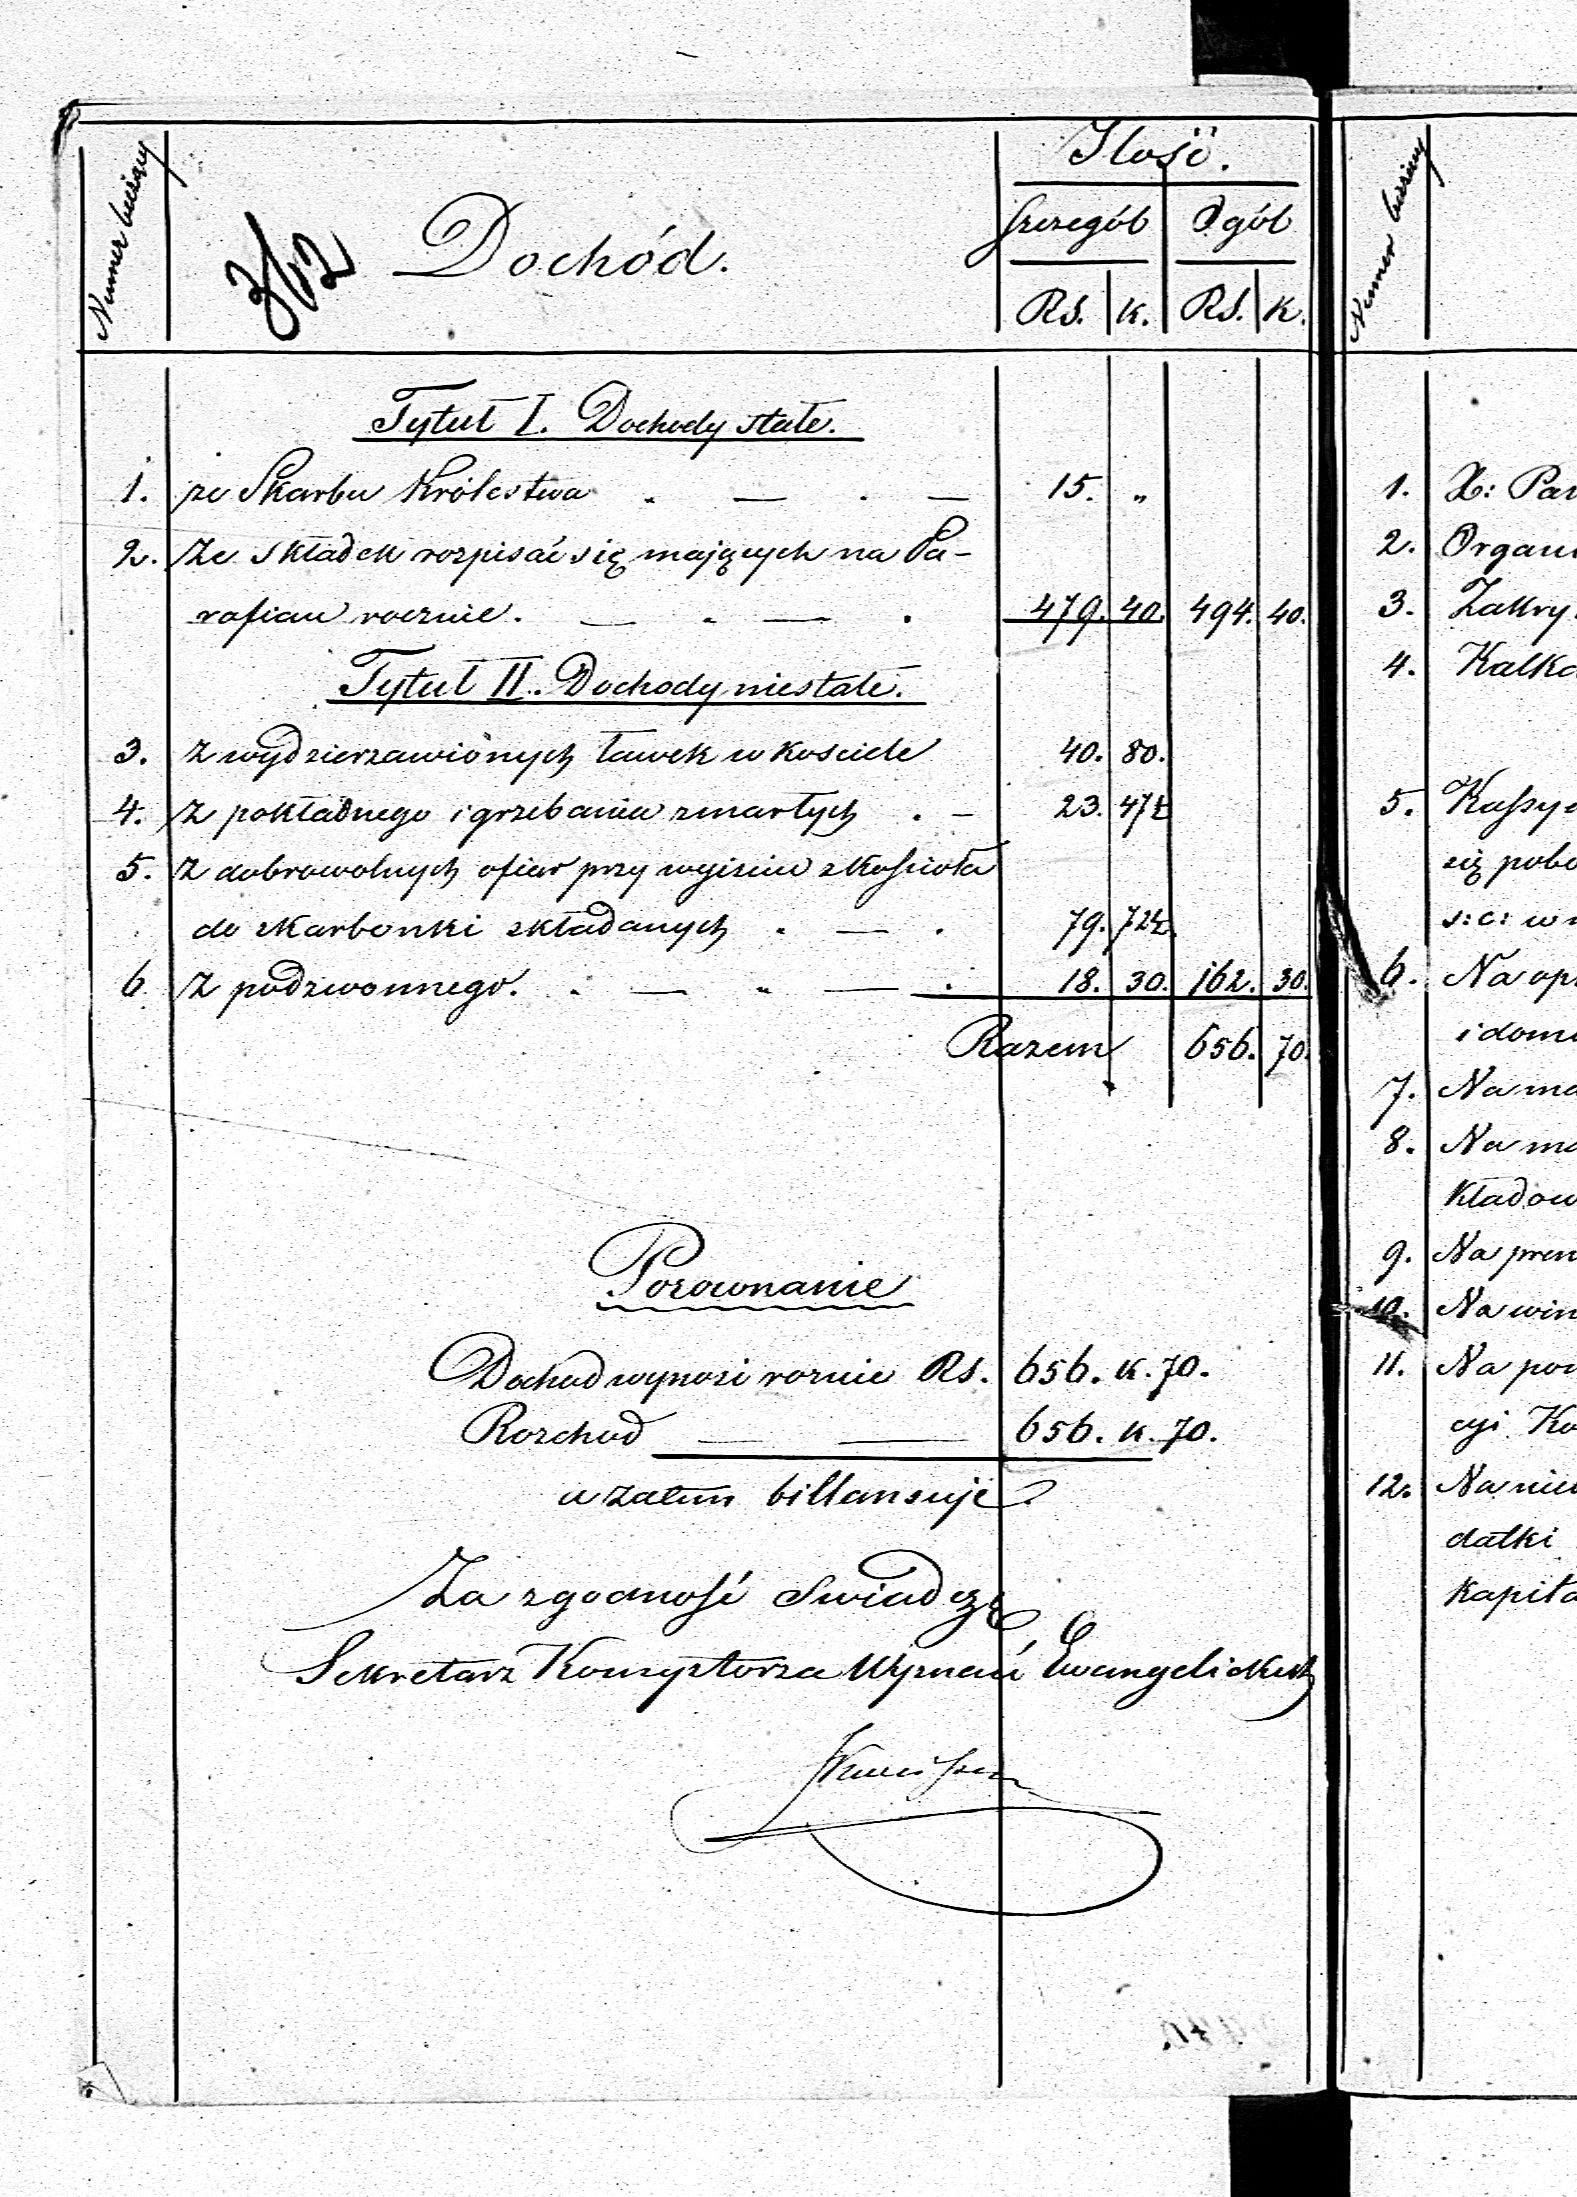 Numer bieżący
362
Dochód.
Ilość.
Szczegół
Ogół
Rs. k. Rs. k.
Tytuł I. Dochody stałe.
1. ze Skarbu Królestwa . — . — 15. „
2. Ze składek rozpisać się mających na Pa-
rafian rocznie. — . — . 479. 40. 494. 40.
Tytuł II. Dochody niestałe.
3. z wydzierzawionych ławek w kościele 40. 80.
4. z pokładnego i grzebania zmarłych . — 23. 47½
5. z dobrowolnych ofiar przy wyjściu z kościoła
do skarbonki składanych . — . 79. 72½.
6 z podzwonnego. . — . — . 18. 30. 162. 30.
Razem 656. 70.
Porownanie
Dochod wynosi rocznie Rs. 656. k. 70.
Rozchod — — 656. k. 70.
a zatem billansuje.
Za zgodność świadczę
Sekretarz Konsystorza Wyznań Ewangelickich
Numer bieżący
1. X: Par
2. Organi
3. Zakry
4. Kalka
5. Kassye
się pobo
s: c: w
6. Na op
i dom
7. Na ma
8. Na ma
kładow
9. Na pren
10. Na win
11. Na po
cyi Ko
12. Na nie
datki
kapita